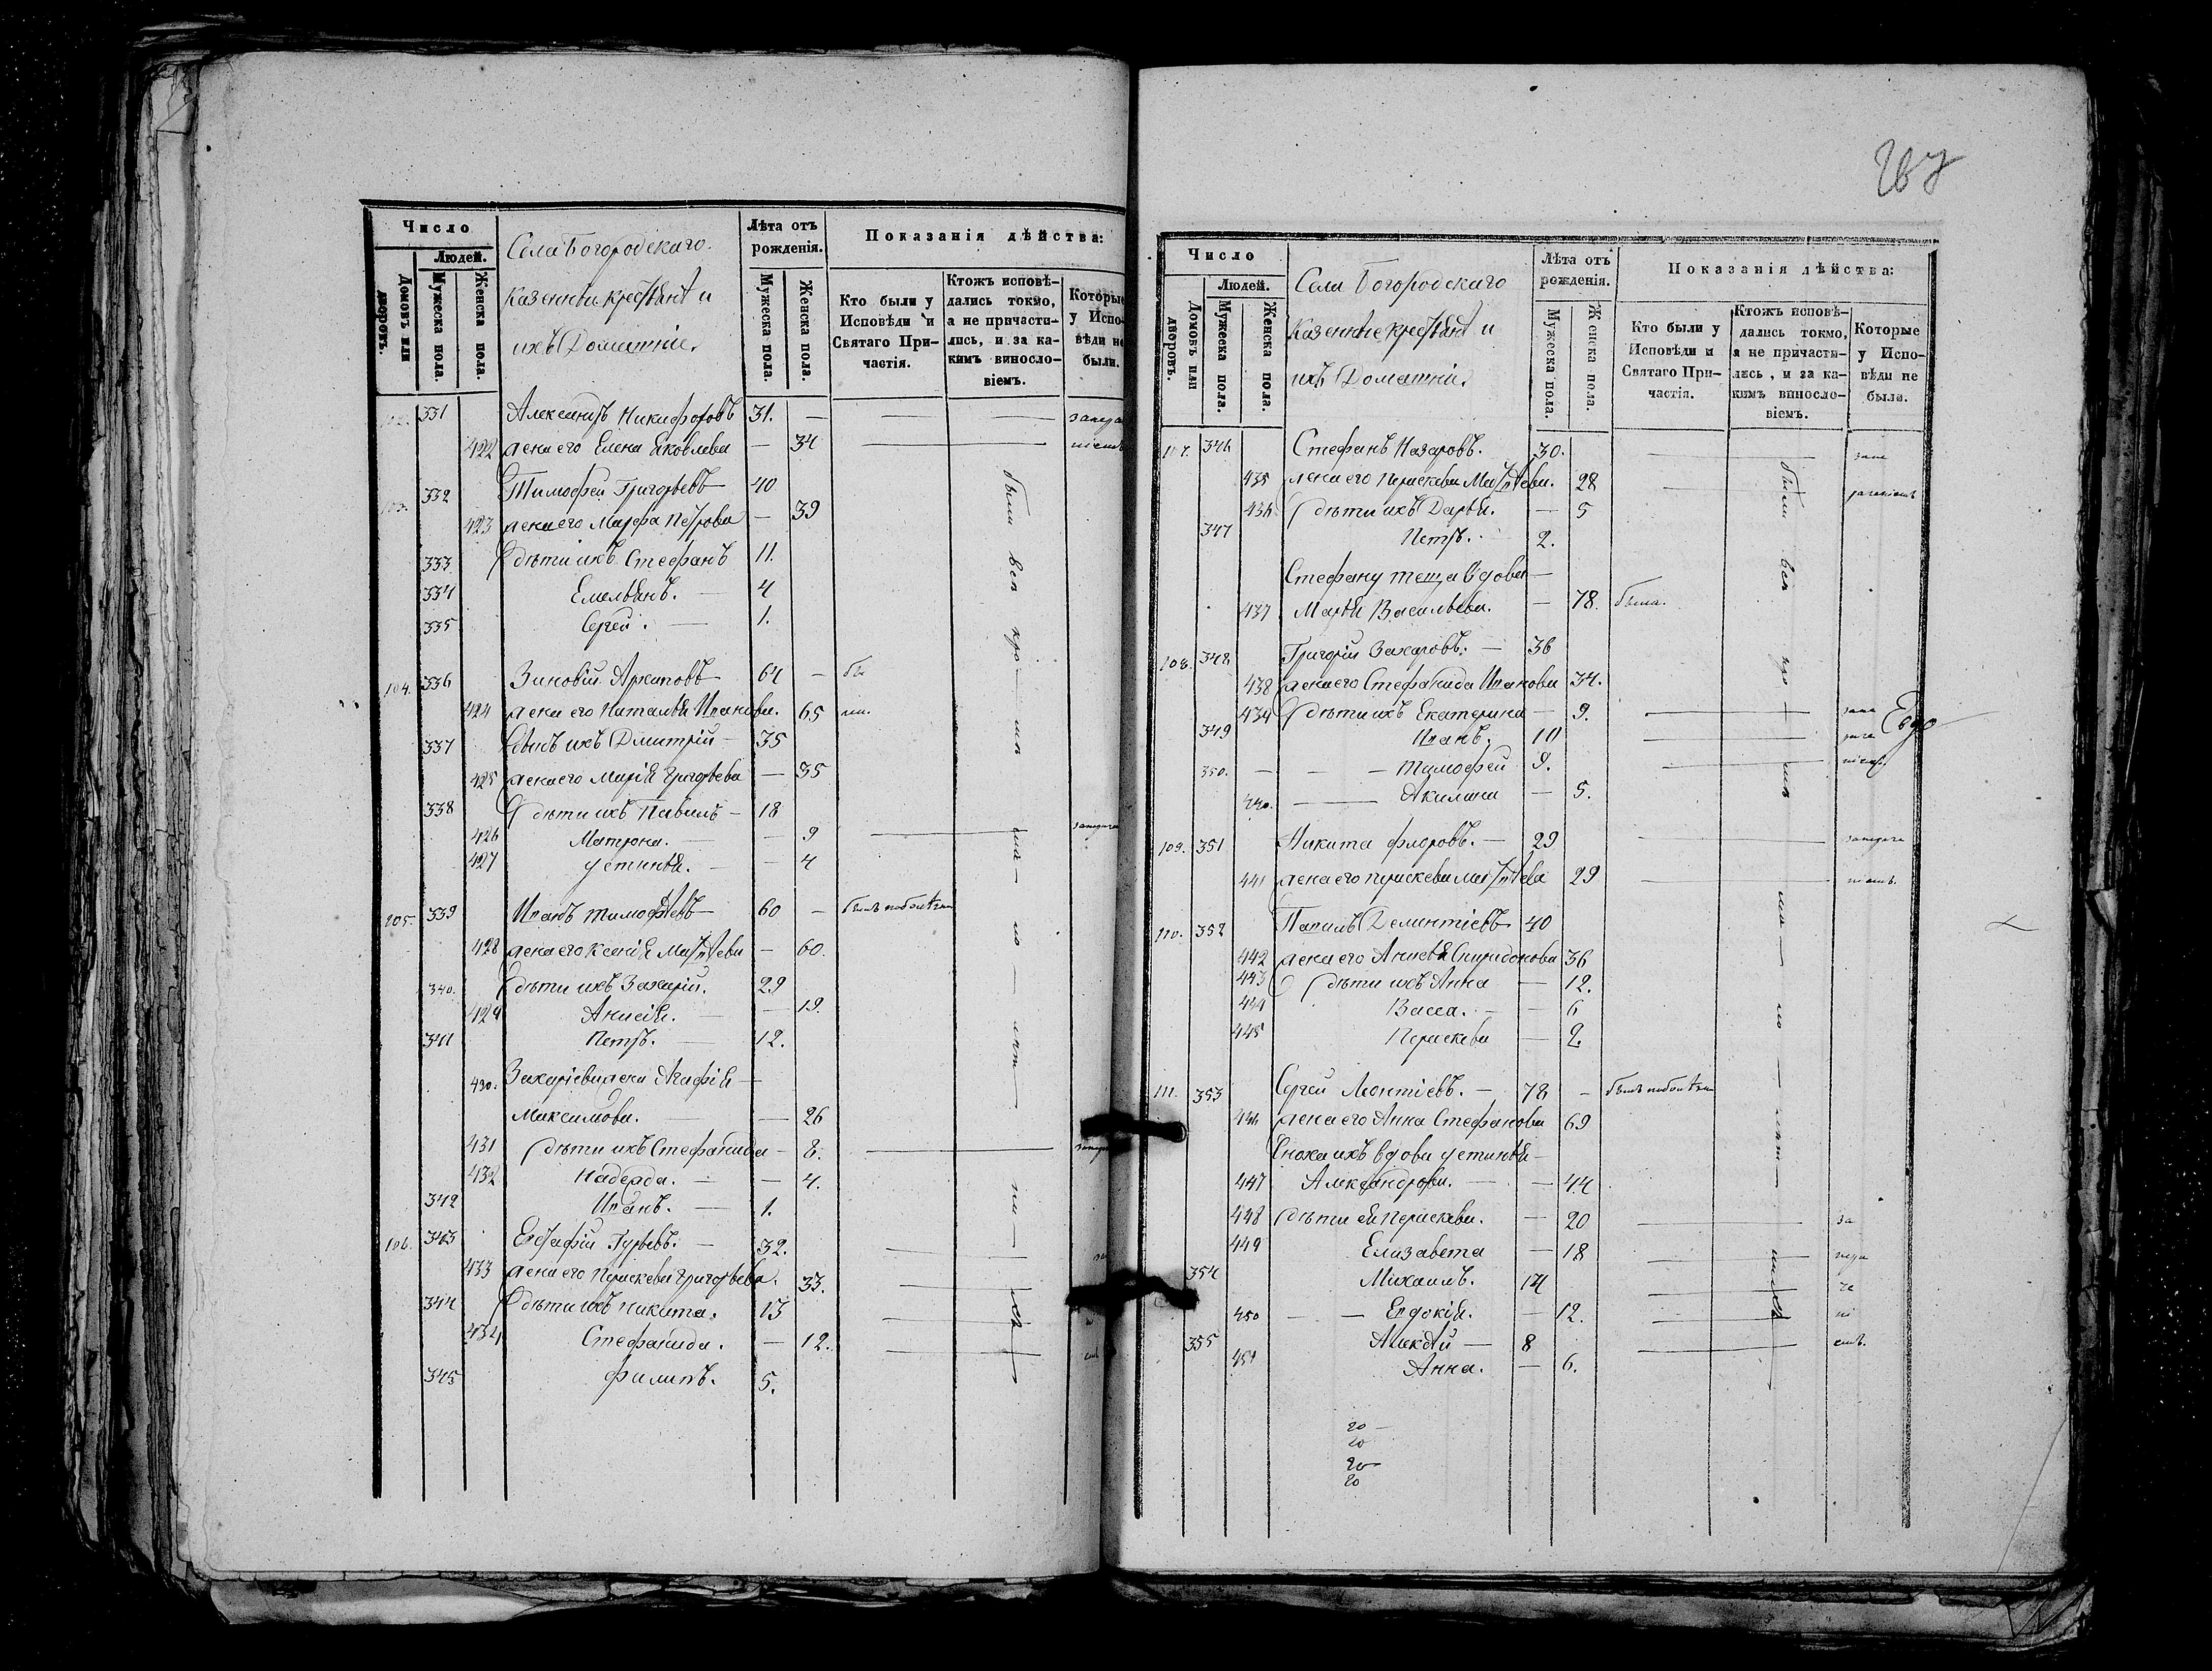 Число
Людей.
Домовъ или дворовъ.
Мужеска пола.
Женска пола.
Села Богородскаго
казенные крестьяне и
ихъ Домашніе
Лѣта отъ рожденія.
Мужеска пола.
Женска пола.
Показанія дѣйства:
Кто были у Исповѣди и Святаго Причастія.
Ктожъ исповѣдались токмо, а не причастились, и за какимъ винословіемъ.
Которые у Исповѣди не были.
331 Александръ Никифоровъ 31.
422 жена его Елена Яковлева — 34
103. 332 Тимофей Григорьевъ 40
423 жена его Марфа Петрова — 39
333 дѣти ихъ Стефанъ 11.
334 Емельянъ. — 4
335 Сергей. — 1.
104. 336 Зиновій Архиповъ 64 —
424 жена его Наталья Иванова. 65
337 сынъ ихъ Дмитрій — 35
425 жена его Марія Григорьева — 35
338 дѣти ихъ Павелъ — 18
426 Матрона. — 9
427 Устинья. — 4
105. 339 Иванъ Тимофѣевъ 60 —
428 жена его Ксенія Матвѣева — 60.
340. дѣти ихъ Захарій. 29
429 Анисія. — 19.
341 Петръ. — 12.
430. Захаріева жена Агафія —
Максимова. — 26
431 дѣти ихъ Стефанида — 8.
432 Надежда. — 4.
342 Иванъ. — 1.
106. 343 Евстафій Гурьевъ. — 32.
433 жена его Параскева Григорьева. 33.
344 дѣти ихъ Никита. 13
434 Стефанида. — 12.
345 Филипъ. 5.
были всѣ кро
Число
Людей.
Домовъ или дворовъ.
Мужеска пола.
Женска пола.
Села Богородскаго
Казенные крестьяне и
ихъ Домашніе
Лѣта отъ рожденія.
Мужеска пола.
Женска пола.
Показанія дѣйства:
Кто были у Исповѣди и Святаго Причастія.
Ктожъ исповѣдались токмо, а не причастились, и за какимъ винословіемъ.
Которые у Исповѣди не были.
107. 346 Стефанъ Назаровъ. 30.
435 жена его Параскева Матвѣева. 28
436 дѣти ихъ Дарья. — 5
347 Петръ. 2.
Стефану теща вдова —
437 Марья Васильева. — 78. была.
108. 348 Григорій Захаровъ. — 36
438 жена его Стефанида Иванова 34.
439 дѣти ихъ Екатерина — 9.
349 Иванъ. 10
350. — — Тимофей 9.
440. — Акилина — 5.
109. 351 Никита Флоровъ. — 29
441 жена его Параскева Матвѣева 29
110. 352 Павелъ Дементіевъ 40
442 жена его Анисья Спиридонова 36
443 дѣти ихъ Анна — 12.
444 Васса. — 6
445 Параскева — 2.
111. 353 Сергей Леонтіевъ. — 78 —
446 жена его Анна Стефанова 69
Сноха ихъ вдова Устинья —
447 Александрова. — 44
448 дѣти ея Параскева. — 20
449 Елизавета — 18
354 Михаилъ. 14
450 — — Евдокія. — 12.
355 Алексѣй — 8
451 Анна. — 6.
были всѣ кро
20 —
20
20
20